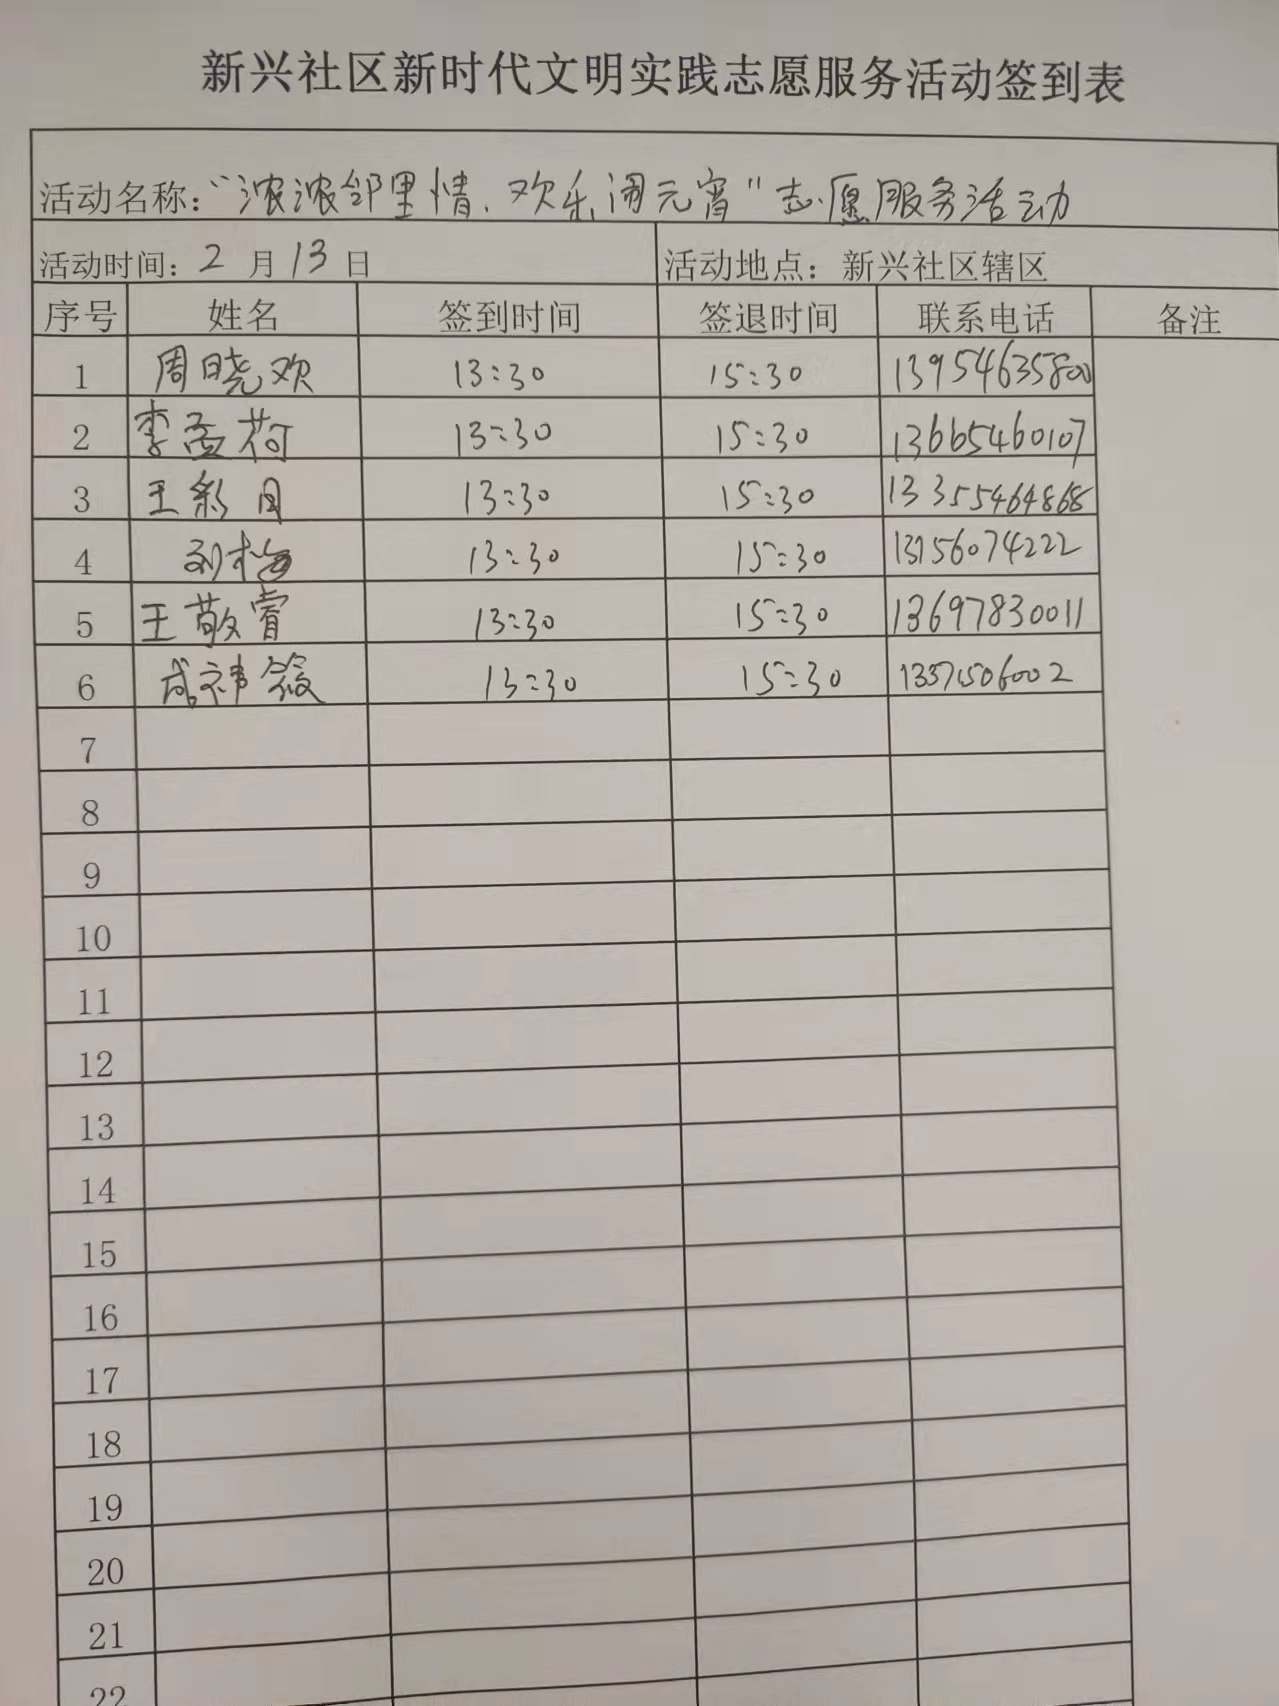 新兴社区新时代文明实践志愿服务活动签到表
活动名称："浓浓邻里情、欢乐闹元宵"志愿服务活动
活动时间：2月13日 活动地点：新兴社区辖区
序号 姓名 签到时间 签退时间 联系电话 备注
1 周晓欢 13:30 15:30 13954635800
2 李孟荷 13:30 15:30 13665460107
3 王彩月 13:30 15:30 13355464868
4 刘梅 13:30 15:30 13156074222
5 王敬睿 13:30 15:30 13697830011
6 13:30 15:30
7
8
9
10
11
12
13
14
15
16
17
18
19
20
21
22